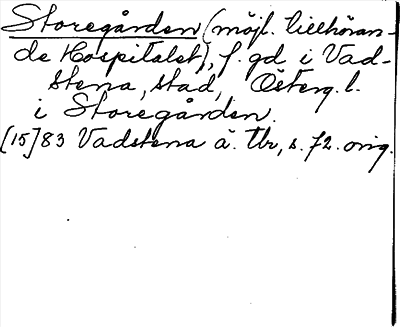 Storegården (möjl. tillhöran-
de Hospitalet), f. gd i Vad-
stena, stad, Österg. l.
i Storegården.
[15]83 Vadstena ä. Tb, s. 72. orig.